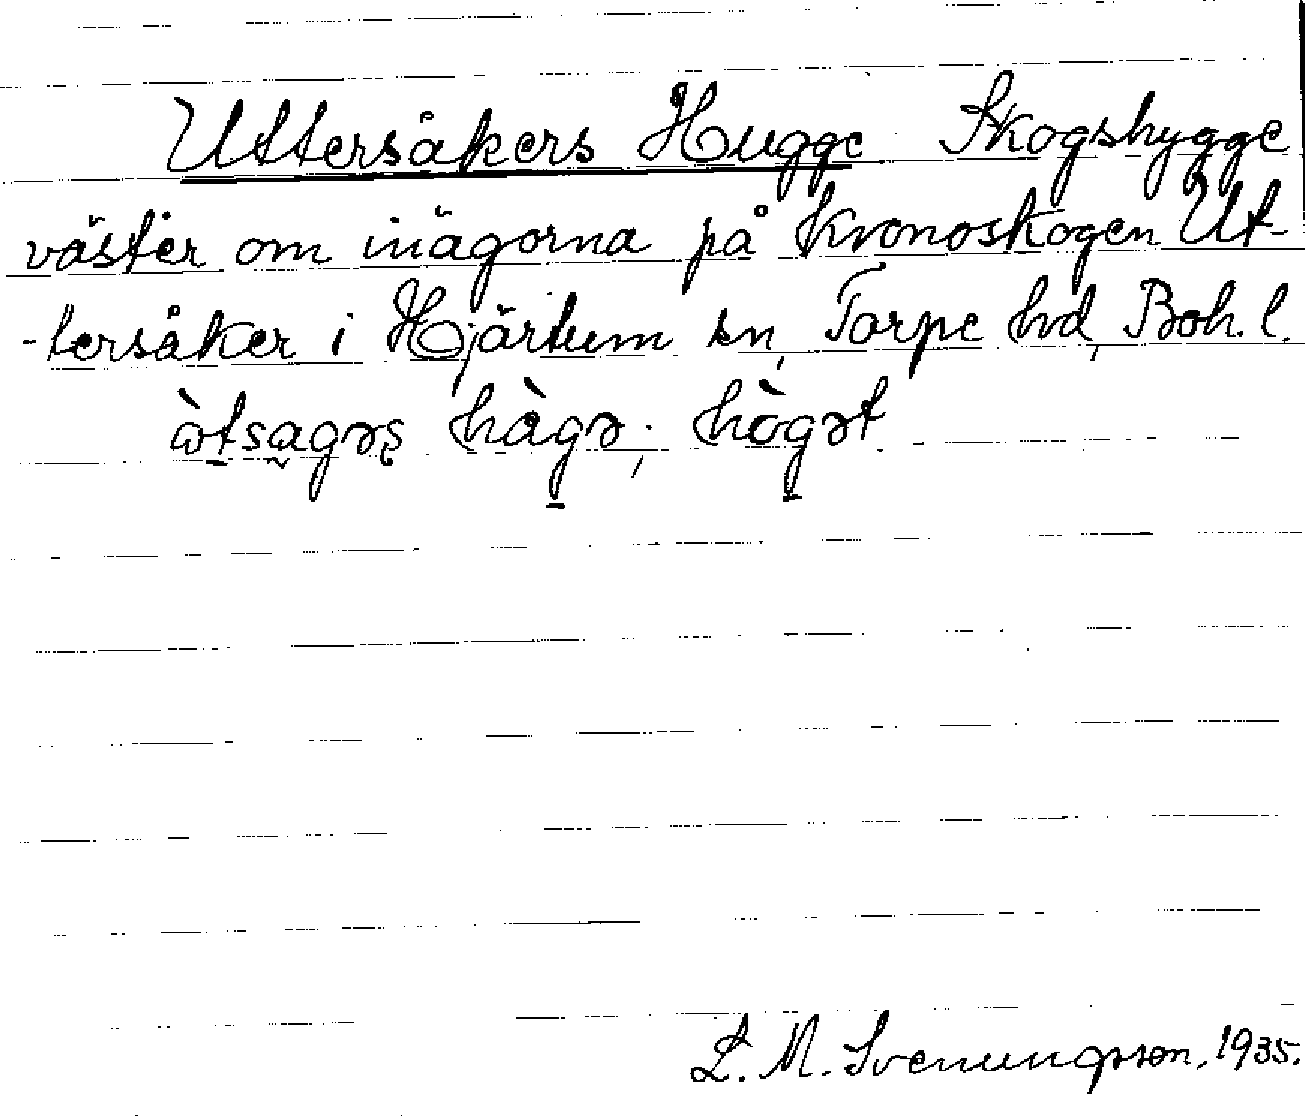 Uttersåkers Hugge Skogshygge
väster om inägorna på kronoskogen Ut-
-tersåker i Hjärtum sn, Torpe hd, Boh. l.
ὼtsagəs hàgə; hògət
L. M. Svenungsson, 1935.